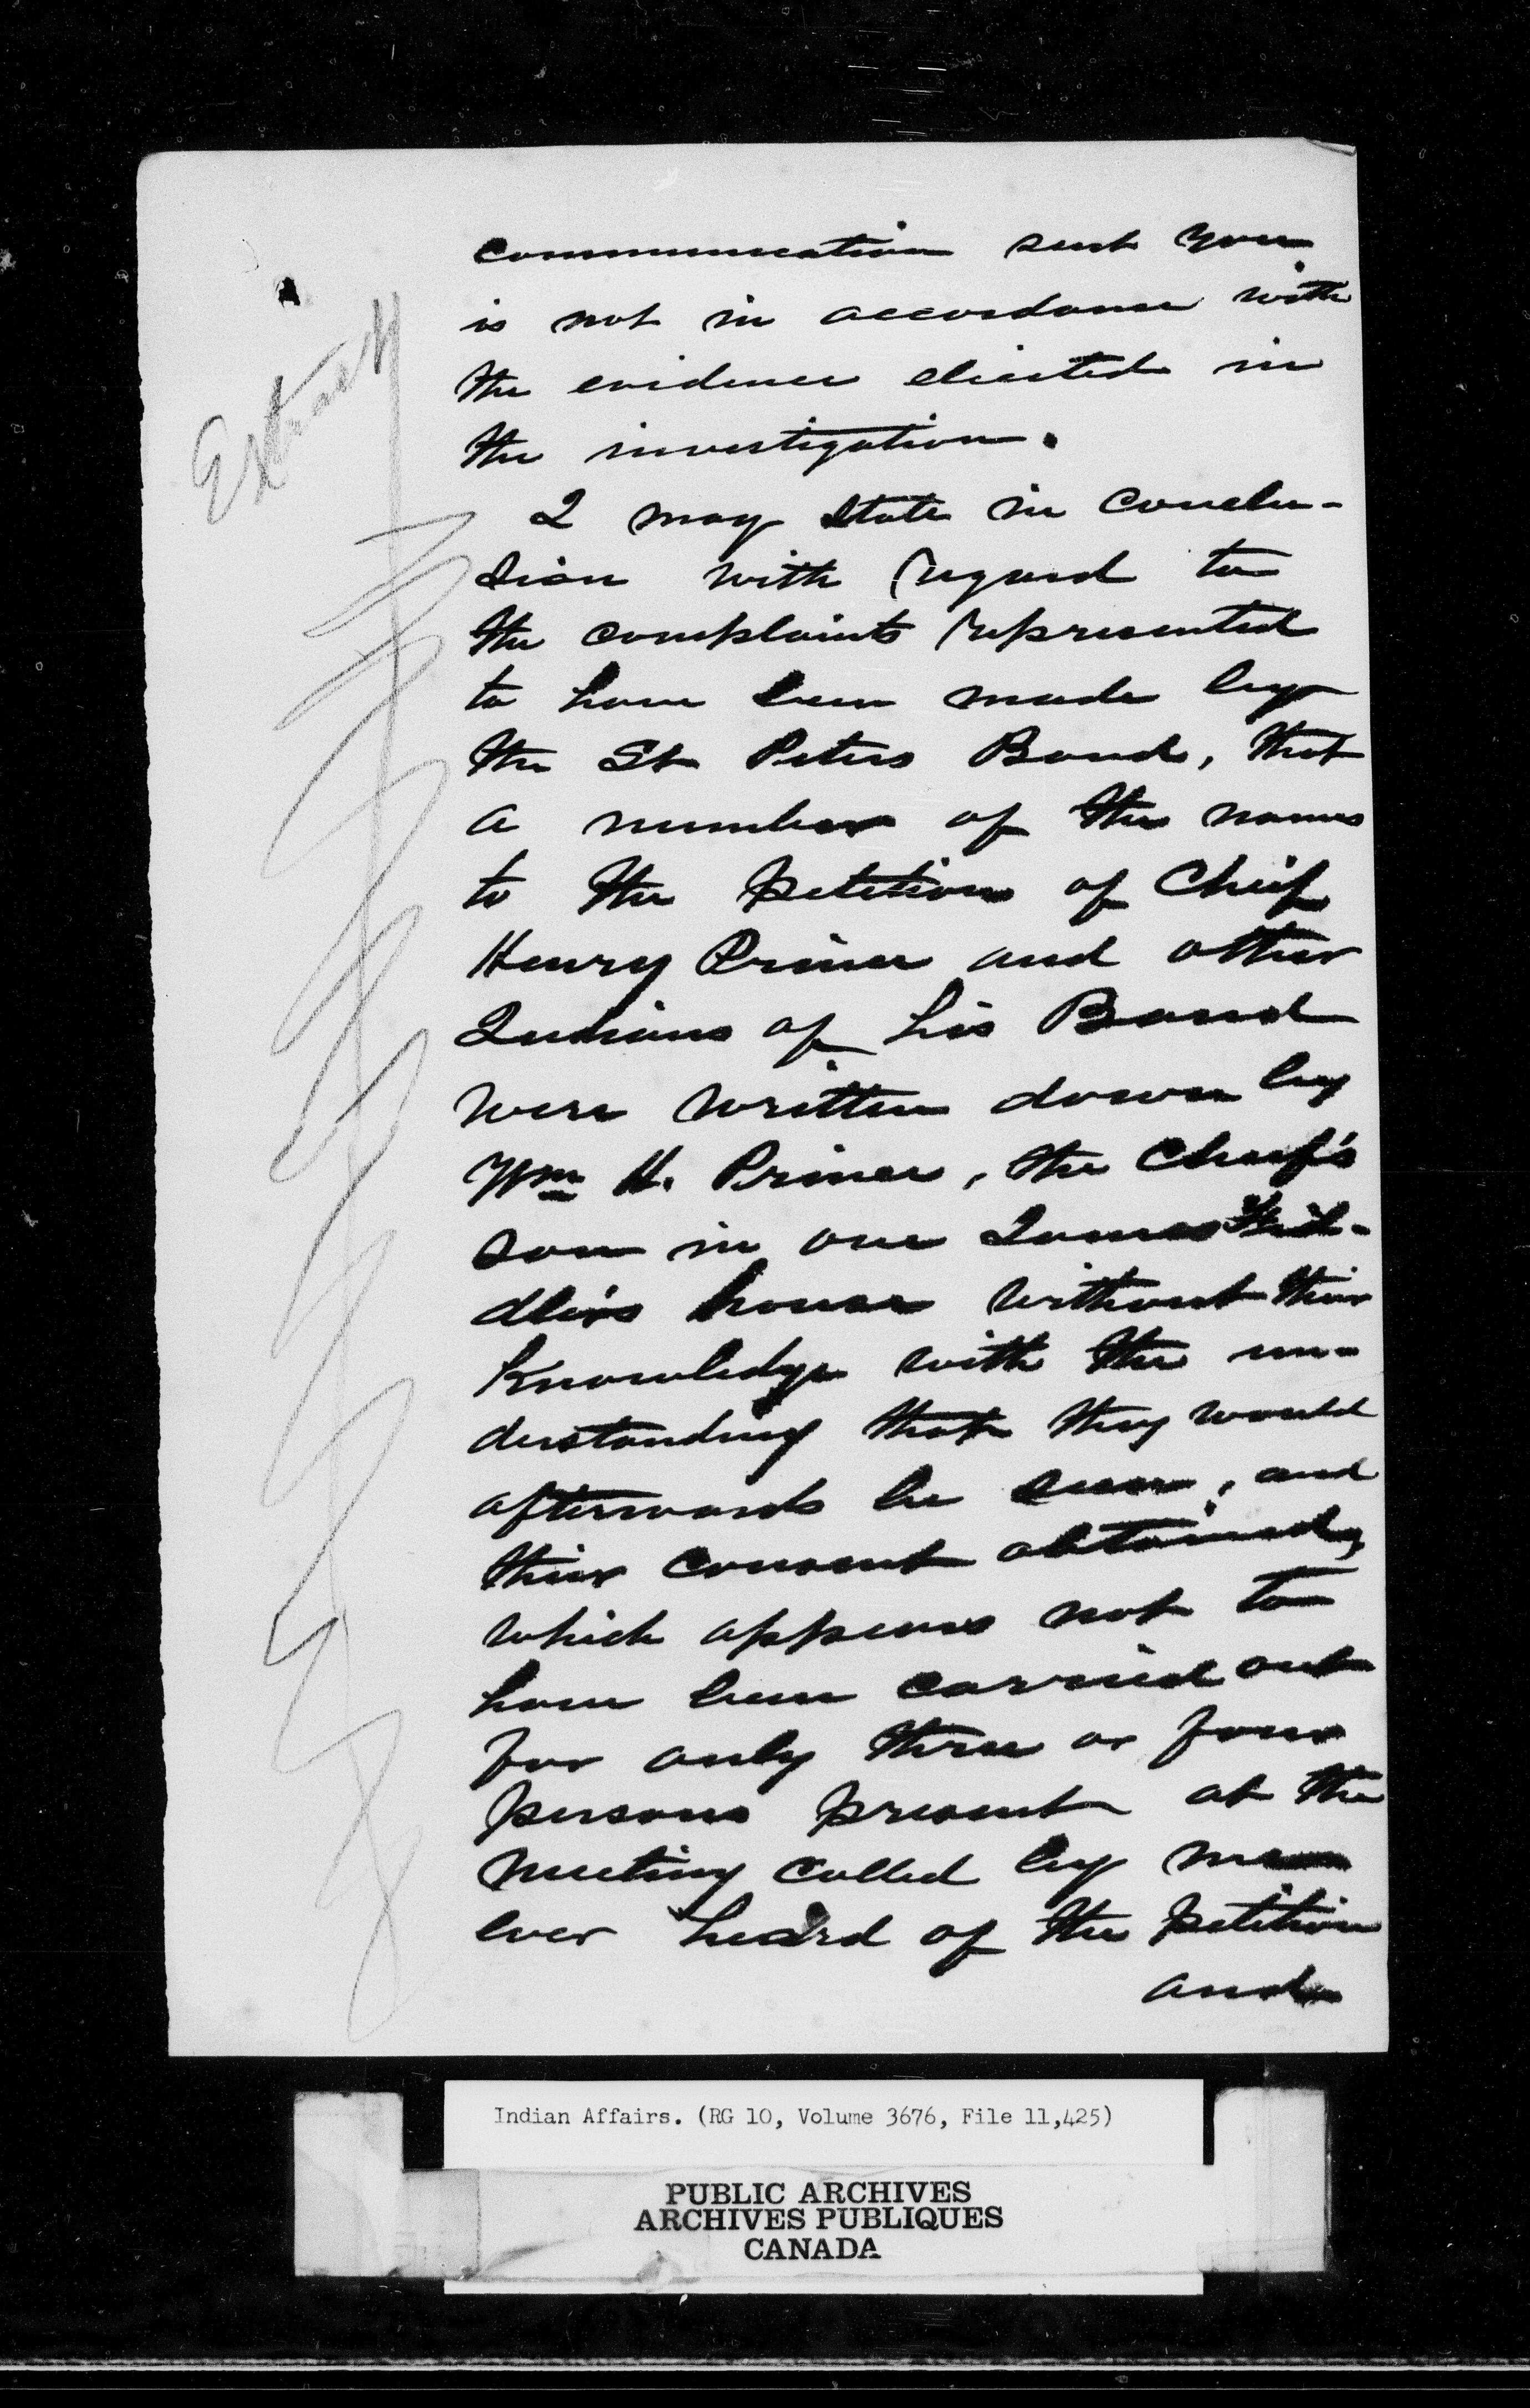 Extract
communication sent you
is not in accordance with
the evidence elicited in
the investigation.
I may state in conclu-
sion with regard to
the complaints represented
to have been made by
the St Peters Band, that
a number of the names
to the petition of Chief
Henry Prince and other
Indians of his Band
were written down by
Wm H. Prince, the Chief's
son in one James Fid-
dler's house without their
knowledge with the un-
derstanding that they would
afterwards be seen, and
their consent obtained,
which appears not to
have been carried out
for only three or four
persons present at the
meeting called by me
ever heard of the petition
and
Indian Affairs. (RG 10, Volume 3676, File 11,425)
PUBLIC ARCHIVES
ARCHIVES PUBLIQUES
CANADA